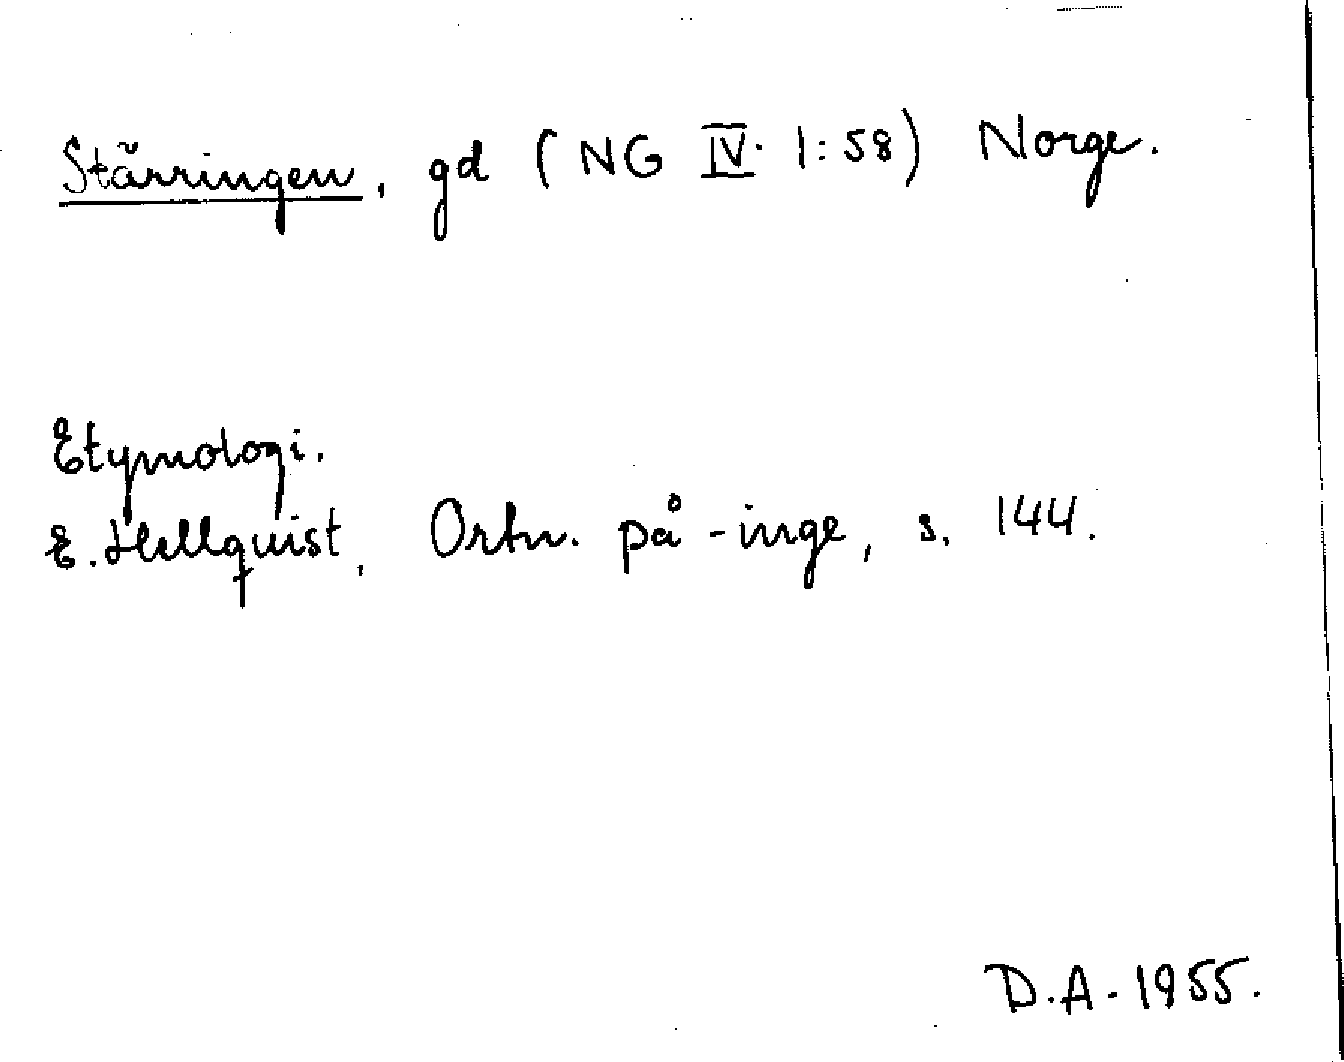 Stärringen, gd (NG IV. 1:58) Norge.
Etymologi.
E. Hellquist, Ortn. på -inge, s. 144.
D.A. 1955.